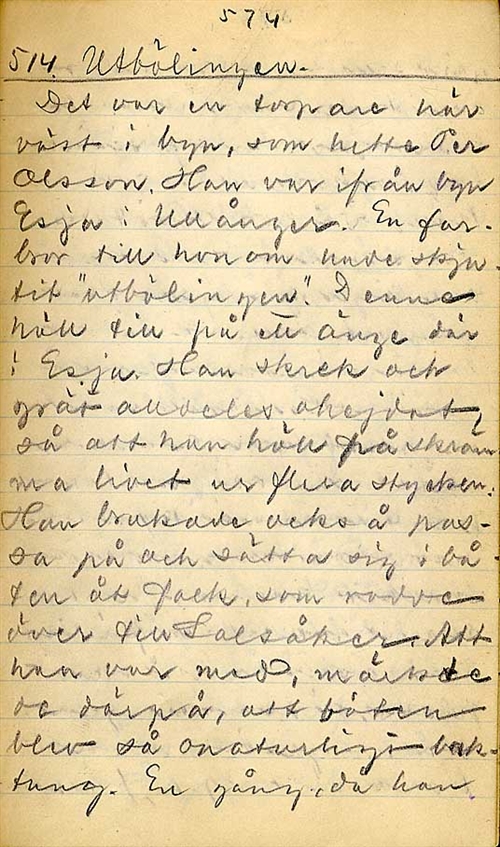 574
514. Utbölingen.
Det var en torpare här
väst i byn, som hette Per
Olsson. Han var ifrån byn
Esja i Ullånger. En far-
bror till honom hade skju-
tit "utbölingen". Denne
höll till på ett änge där
i Esja. Han skrek och
grät alldeles ohejdat,
så att han höll på skräm
ma livet ur flera stycken.
Han brukade också pas-
sa på och sätta sig i bå-
ten åt folk, som rodde
över till Salsåker. Att
han var med, märkte
de därpå, att båten
blev så onaturligt bak-
tung. En gång, då han